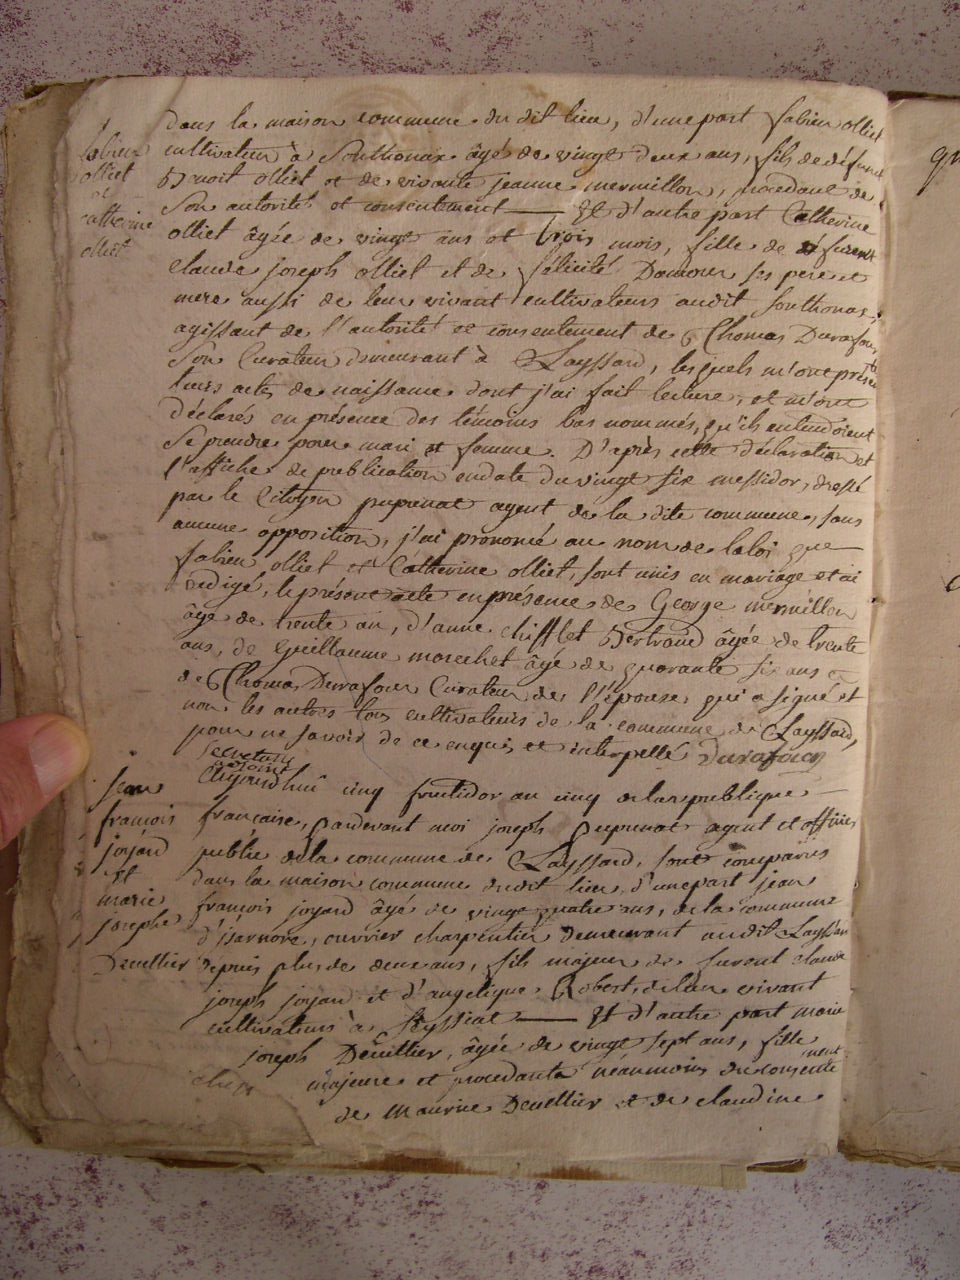 dans la maison commune du dit lieu, d'une part fabien olliet
fabien
olliet
et
catherine
olliet
cultivateur à Sonthonax âgé de vingt deux ans, fils de défunt
Benoit olliet et de vivante jeanne mermillon, procedant de
Son autorité et consentement — Et d'autre part Catherine
olliet âgée de vingt ans et trois mois, fille de défurent
claude joseph olliet et de félicité Damour ses pere et
mere aussi de leur vivant cultivateurs audit Sonthonax,
agissant de l'autorité et consentement de Thomas Durafour
Son Curateur demeurant à Layssard, lesquels m'ont présenté
leurs actes de naissance dont j'ai fait lecture, et m'ont
déclarés en présence des témoins bas nommés, qu'ils entendoient
Se prendre pour mari et femme. D'après cette déclaration et
l'affiche de publication en date du vingt six messidor, dressé
par le Citoyen puprenat agent de la dite commune, sans
aucune opposition, j'ai prononcé au nom de la loi que
fabien olliet et Catherine olliet, sont unis en mariage et ai
redigé, le présent acte en presence de George mermillon
âgé de trente an, d'anne chifflet Bertrand âgée de trente
ans, de Guillaume morechet âgé de quarante six ans et
de Thomas Durafour Curateur de l'épouse qui a signé et
non les autres tous cultivateurs de la commune de Layssard,
pour ne savoir de ce enquis et interpellé Durafour
Secretaire
adjoint
jean
françois
joyard
et
marie
josephe
Devillier
Aujourd'hui cinq fructidor an cinq de la republique
francaise, Pardevant moi joseph Puprenat agent et officier
public de la commune de Layssard, sont comparus
dans la maison commune dudit lieu, d'une part jean
françois joyard âgé de vingt quatre ans, de la commune
d'isarnore, ouvrier charpentier demeurant audit Layssard
depuis plus de deux ans, fils majeur de furent claude
joseph joyard et d'angelique Robert, de leur vivant
cultivateurs à Seyssiat — Et d'autre part marie
joseph Devillier, âgée de vingt sept ans, fille
majeure et procedante néanmoins du consentement
de maurice Devillier et de claudine